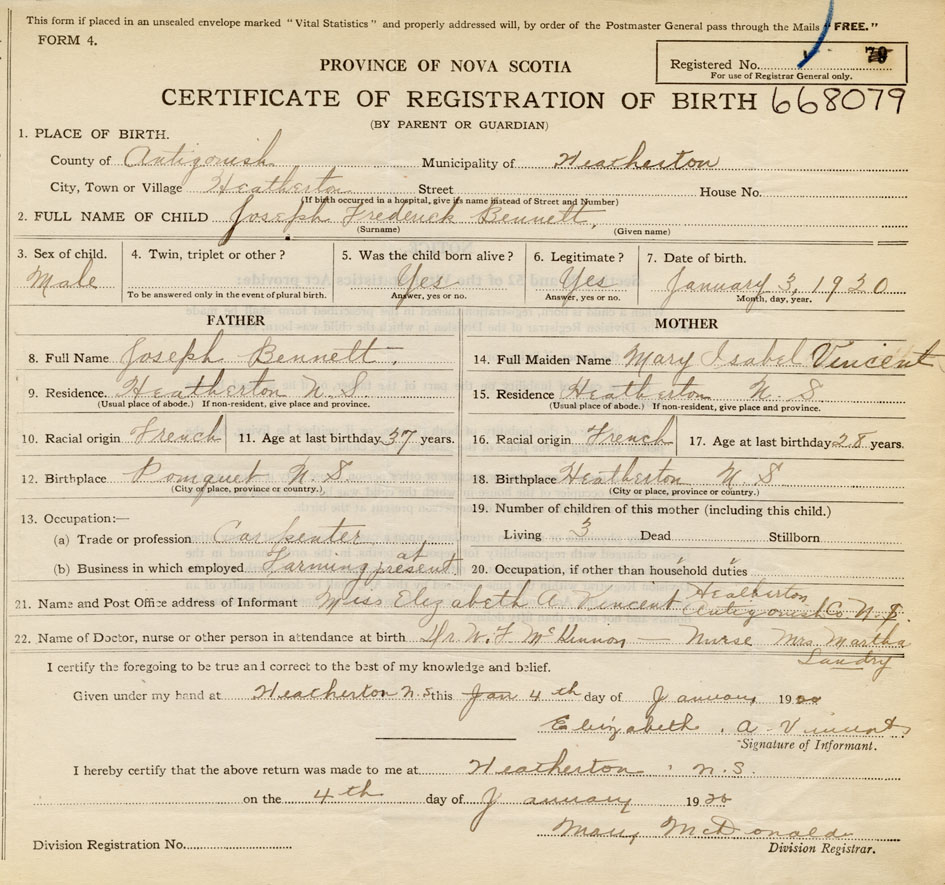 This form if placed in an unsealed envelope marked "Vital Statistics" and properly addressed will, by order of the Postmaster General pass through the Mails "FREE."
FORM 4.
Registered No. 79
For use of Registrar General only.
PROVINCE OF NOVA SCOTIA
CERTIFICATE OF REGISTRATION OF BIRTH 668079
(BY PARENT OR GUARDIAN)
1. PLACE OF BIRTH.
County of Antigonish Municipality of Heatherton
City, Town or Village Heatherton Street House No.
(If birth occurred in a hospital, give its name instead of Street and Number)
2. FULL NAME OF CHILD Joseph Frederick Bennett,
(Surname) (Given name)
3. Sex of child. 4. Twin, triplet or other? 5. Was the child born alive? 6. Legitimate? 7. Date of birth.
Male Yes Yes January 3, 1930
To be answered only in the event of plural birth. Answer, yes or no. Answer, yes or no. Month, day, year.
FATHER MOTHER
8. Full Name Joseph Bennett, 14. Full Maiden Name Mary Isabel Vincent
9. Residence. Heatherton N. S. 15. Residence Heatherton N. S
(Usual place of abode.) If non-resident, give place and province. (Usual place of abode.) If non-resident, give place and province.
10. Racial origin French 11. Age at last birthday 37 years. 16. Racial origin French 17. Age at last birthday 28 years.
12. Birthplace Pomquet N. S. 18. Birthplace Heatherton N. S
(City or place, province or country.) (City or place, province or country.)
13. Occupation:— 19. Number of children of this mother (including this child.)
(a) Trade or profession Carpenter Living 3 Dead Stillborn
(b) Business in which employed Farming at present 20. Occupation, if other than household duties " "
21. Name and Post Office address of Informant Miss Elizabeth A. Vincent Heatherton Antigonish Co. N. S.
22. Name of Doctor, nurse or other person in attendance at birth Dr. W. F. McKinnon — Nurse Mrs. Martha Landry
I certify the foregoing to be true and correct to the best of my knowledge and belief.
Given under my hand at Heatherton N. S. this Jan 4th day of January, 1930
Elizabeth A. Vincent
Signature of Informant.
I hereby certify that the above return was made to me at Heatherton, N.S.
on the 4th day of January 1930
Mary McDonald
Division Registration No. Division Registrar.